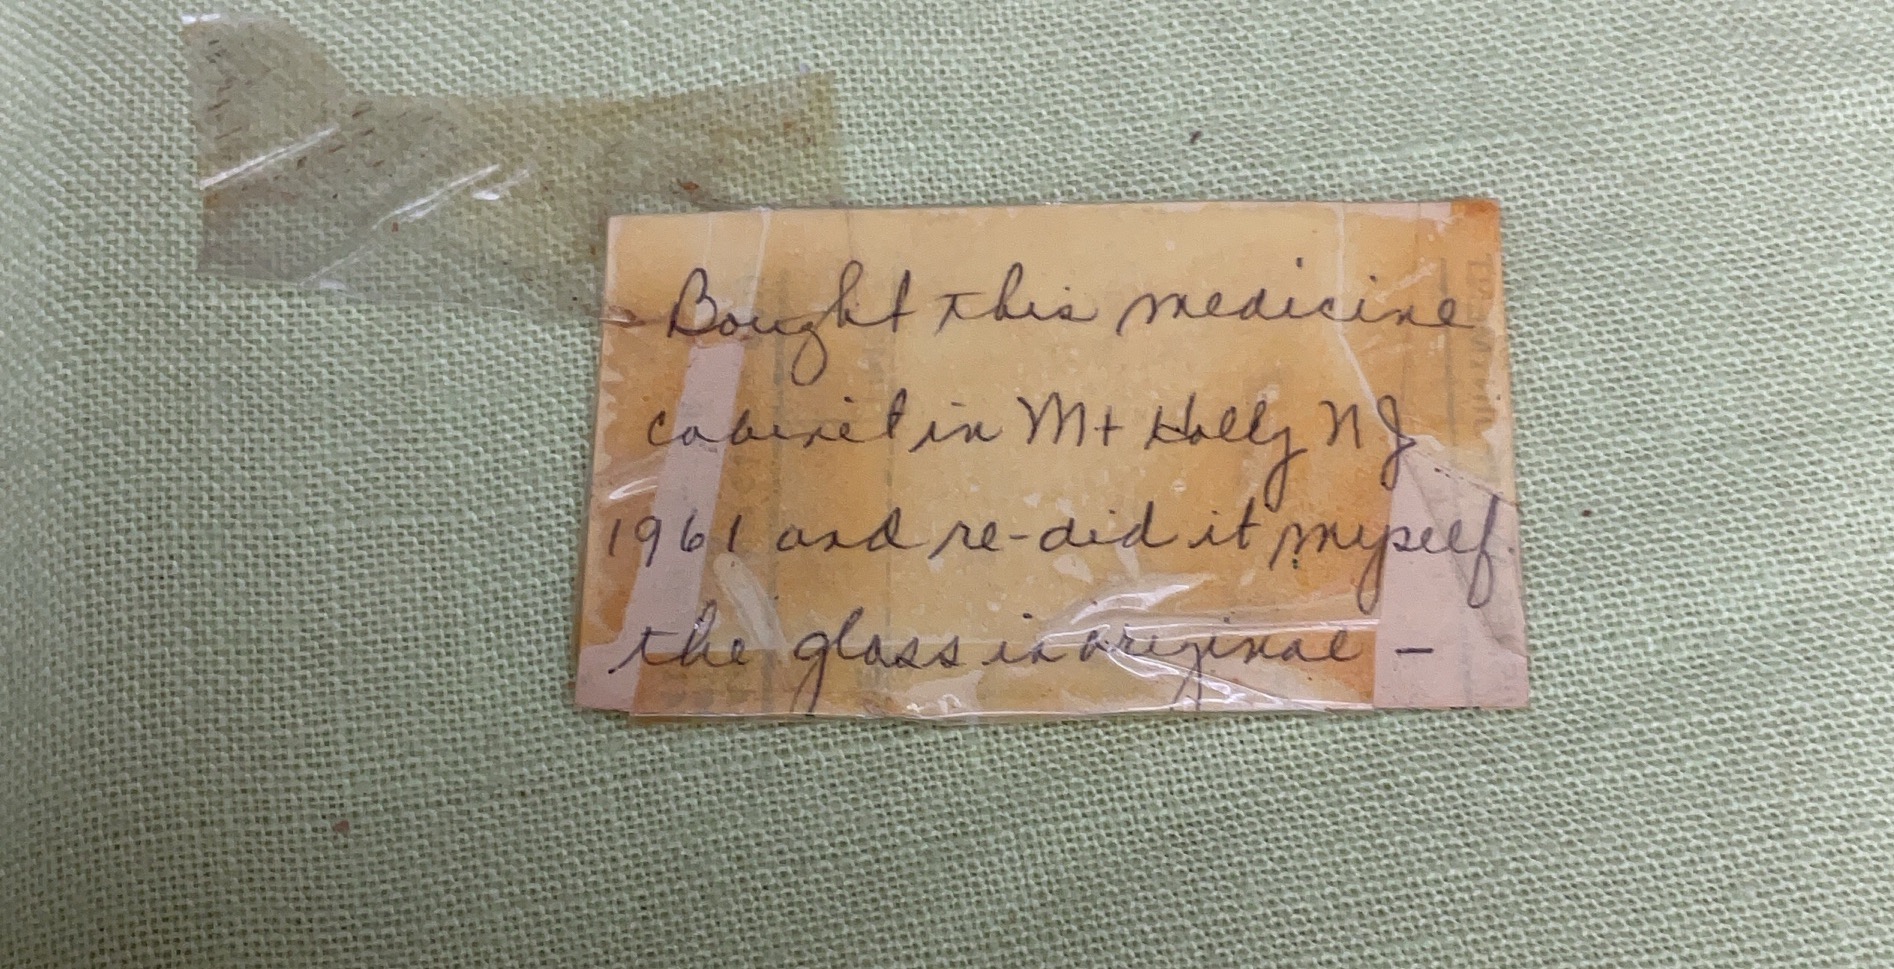 Bought this medicine
cabinet in Mt Holly NJ
1961 and re-did it myself.
the glass is original –